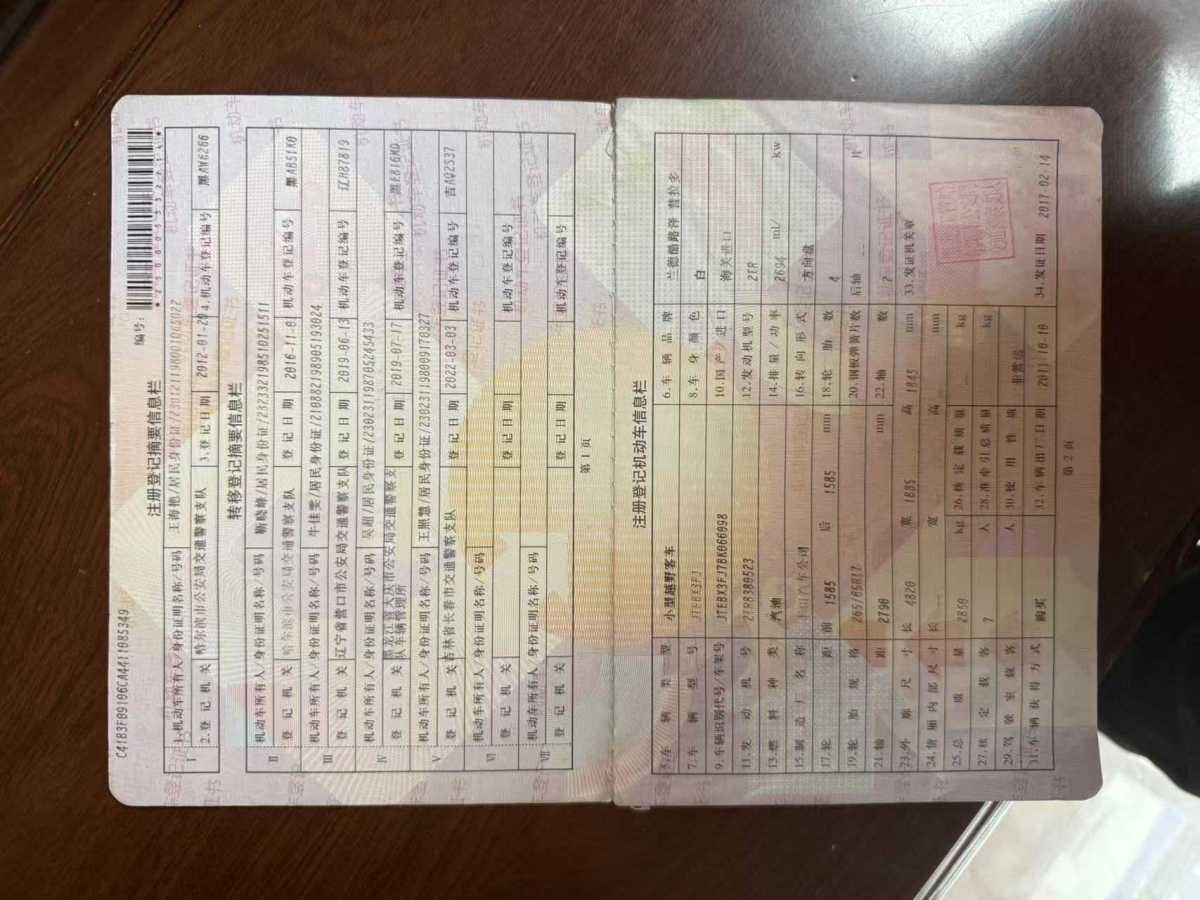 C41B3F09106CA4411085349
编号:
注册登记摘要信息栏
Ⅰ 1.机动车所有人/身份证明名称/号码 王海艳/居民身份证/
2.登记机关 哈尔滨市公安局交通警察支队 3.登记日期 2012-01-20 4.机动车登记编号 黑AW6266
转移登记摘要信息栏
Ⅱ 机动车所有人/身份证明名称/号码 靳晓峰/居民身份证/232332198510251511
登记机关 哈尔滨市公安局交通警察支队 登记日期 2016-11-8 机动车登记编号 黑AB51K0
Ⅲ 机动车所有人/身份证明名称/号码 牛佳雯/居民身份证/210882198905193024
登记机关 辽宁省营口市公安局交通警察支队 登记日期 2019-06-13 机动车登记编号 辽H87819
Ⅳ 机动车所有人/身份证明名称/号码 吴超/居民身份证/230231198705245433
登记机关 黑龙江省大庆市公安局交通警察支队车辆管理所 登记日期 2019-07-17 机动车登记编号 黑E816MD
Ⅴ 机动车所有人/身份证明名称/号码 王照慧/居民身份证/230231198009170327
登记机关 吉林省长春市交通警察支队 登记日期 2022-03-03 机动车登记编号 吉AQ2S37
Ⅵ 机动车所有人/身份证明名称/号码
登记机关 登记日期 机动车登记编号
Ⅶ 机动车所有人/身份证明名称/号码
登记机关 登记日期 机动车登记编号
第 1 页
注册登记机动车信息栏
5.车辆类型 小型越野客车 6.车辆品牌 兰德酷路泽 普拉多
7.车辆型号 JTEBX3FJ 8.车身颜色 白
9.车辆识别代号/车架号 JTEBX3FJ7BK066098 10.国产/进口 海关进口
11.发动机号 2TR8380523 12.发动机型号 2TR
13.燃料种类 汽油 14.排量/功率 2694 ml/ kw
15.制造厂名称 丰田汽车公司 16.转向形式 方向盘
17.轮距 前 1585 后 1585 mm 18.轮胎数 4
19.轮胎规格 265/65R17 20.钢板弹簧片数 后轴 片
21.轴距 2790 mm 22.轴数 2
23.外廓尺寸 长 4820 宽 1885 高 1845 mm 33.发证机关章
24.货厢内部尺寸 长 宽 高 mm
25.总质量 2850 kg 26.核定载质量 kg
27.核定载客 7 人 28.准牵引总质量 kg
29.驾驶室载客 人 30.使用性质 非营运
31.车辆获得方式 购买 32.车辆出厂日期 2011-10-10 34.发证日期 2017-02-14
第 2 页